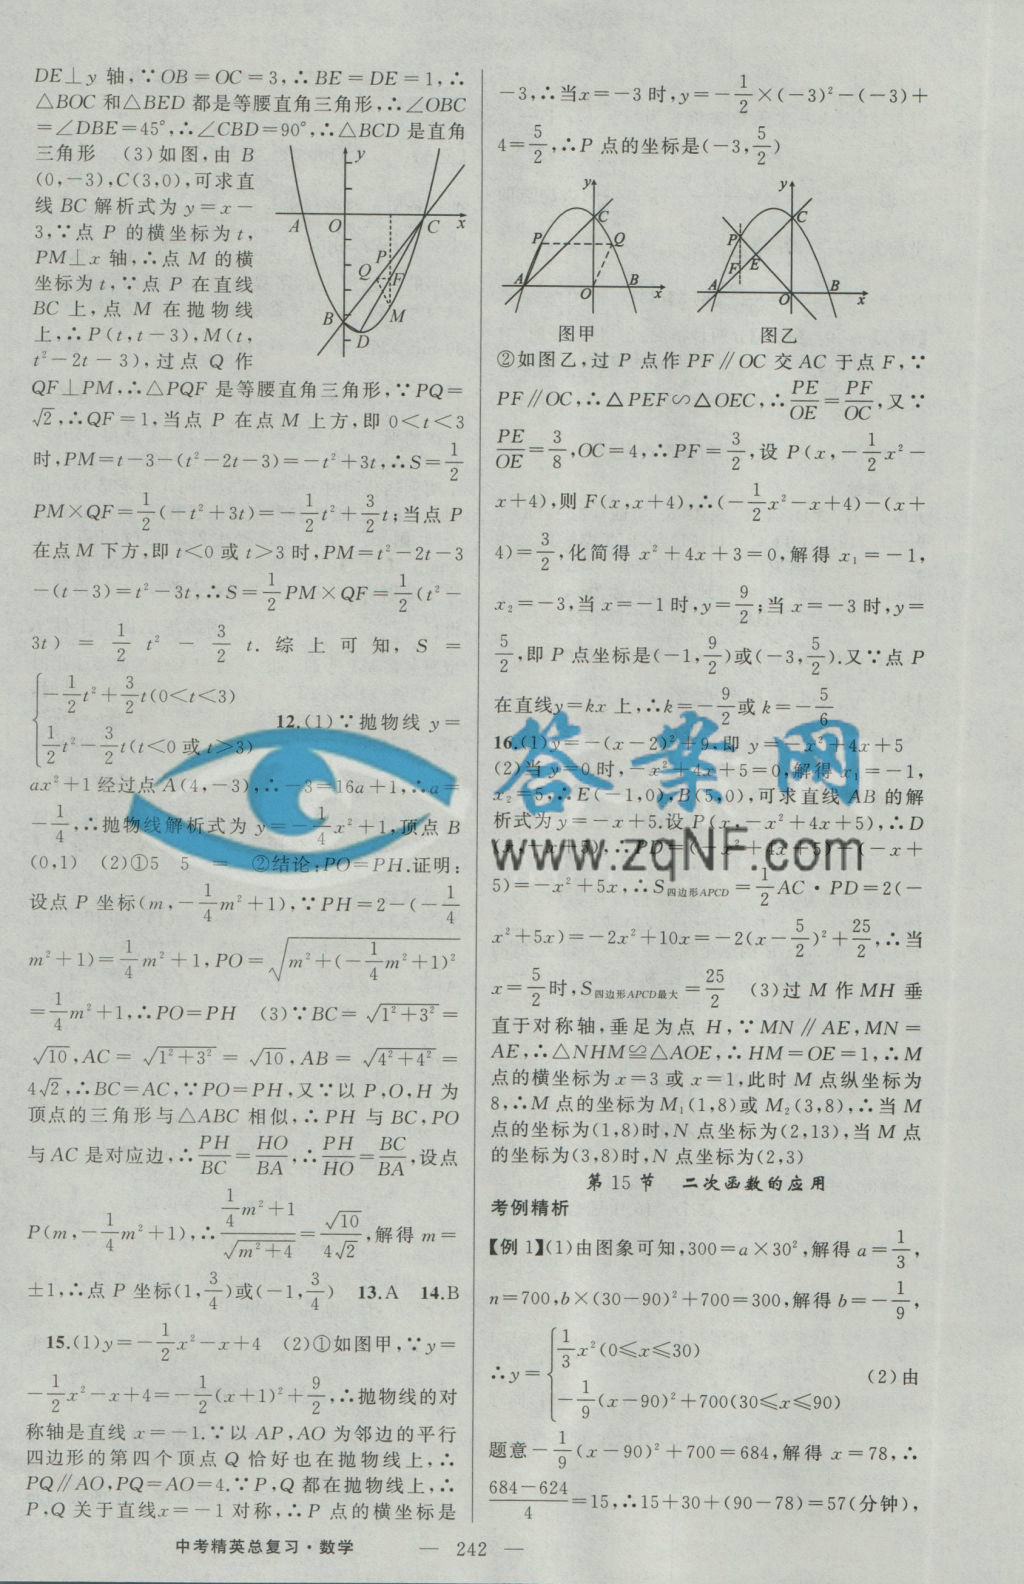 DE⊥y 轴,∵OB=OC=3,∴BE=DE=1,∴
△BOC 和△BED 都是等腰直角三角形,∴∠OBC
=∠DBE=45°,∴∠CBD=90°,∴△BCD 是直角
三角形 (3)如图,由 B
(0,-3),C(3,0),可求直
线 BC 解析式为 y=x-
3,∵点 P 的横坐标为 t,
PM⊥x 轴,∴点 M 的横
坐标为 t,∵点 P 在直线
BC 上,点 M 在抛物线
上,∴P(t,t-3),M(t,
t²-2t-3),过点 Q 作
y
A O C x
P
Q F
B M
D
QF⊥PM,∴△PQF 是等腰直角三角形,∵PQ=
√2,∴QF=1,当点 P 在点 M 上方,即 0<t<3
时,PM=t-3-(t²-2t-3)=-t²+3t,∴S=1/2
PM×QF=1/2(-t²+3t)=-1/2t²+3/2t;当点 P
在点 M 下方,即 t<0 或 t>3 时,PM=t²-2t-3
-(t-3)=t²-3t,∴S=1/2PM×QF=1/2(t²-
3t)=1/2t²-3/2t.综上可知,S=
{-1/2t²+3/2t(0<t<3)
1/2t²-3/2t(t<0 或 t>3) 12.(1)∵抛物线 y=
ax²+1 经过点 A(4,-3),∴-3=16a+1,∴a=
-1/4,∴抛物线解析式为 y=-1/4x²+1,顶点 B
(0,1) (2)①5 5 = ②结论:PO=PH.证明:
设点 P 坐标(m,-1/4m²+1),∵PH=2-(-1/4
m²+1)=1/4m²+1,PO=√(m²+(-1/4m²+1)²)
=1/4m²+1,∴PO=PH (3)∵BC=√(1²+3²)=
√10,AC=√(1²+3²)=√10,AB=√(4²+4²)=
4√2,∴BC=AC,∵PO=PH,又∵以 P,O,H 为
顶点的三角形与△ABC 相似,∴PH 与 BC,PO
与 AC 是对应边,∴PH/BC=HO/BA,∴PH/HO=BC/BA,设点
P(m,-1/4m²+1),∴(1/4m²+1)/√(m²+4)=√10/4√2,解得 m=
±1,∴点 P 坐标(1,3/4)或(-1,3/4) 13.A 14.B
15.(1)y=-1/2x²-x+4 (2)①如图甲,∵y=
-1/2x²-x+4=-1/2(x+1)²+9/2,∴抛物线的对
称轴是直线 x=-1.∵以 AP,AO 为邻边的平行
四边形的第四个顶点 Q 恰好也在抛物线上,∴
PQ∥AO,PQ=AO=4.∵P,Q 都在抛物线上,∴
P,Q 关于直线 x=-1 对称,∴P 点的横坐标是
-3,∴当 x=-3 时,y=-1/2×(-3)²-(-3)+
4=5/2,∴P 点的坐标是(-3,5/2)
y C P Q A O B x
图甲
y C P F E A O B x
图乙
②如图乙,过 P 点作 PF∥OC 交 AC 于点 F,∵
PF∥OC,∴△PEF∽△OEC,∴PE/OE=PF/OC,又∵
PE/OE=3/8,OC=4,∴PF=3/2,设 P(x,-1/2x²-
x+4),则 F(x,x+4),∴(-1/2x²-x+4)-(x+
4)=3/2,化简得 x²+4x+3=0,解得 x₁=-1,
x₂=-3,当 x=-1 时,y=9/2;当 x=-3 时,y=
5/2,即 P 点坐标是(-1,9/2)或(-3,5/2).又∵点 P
在直线 y=kx 上,∴k=-9/2或 k=-5/6
16.(1)y=-(x-2)²+9,即 y=-x²+4x+5
(2)当 y=0 时,-x²+4x+5=0,解得 x₁=-1,
x₂=5,∴E(-1,0),B(5,0),可求直线 AB 的解
析式为 y=-x+5.设 P(x,-x²+4x+5),∴D
(x,-x+5),∴PD=(-x²+4x+5)-(-x+
5)=-x²+5x,∴S四边形APCD=1/2AC·PD=2(-
x²+5x)=-2x²+10x=-2(x-5/2)²+25/2,∴当
x=5/2时,S四边形APCD最大=25/2 (3)过 M 作 MH 垂
直于对称轴,垂足为点 H,∵MN∥AE,MN=
AE,∴△NHM≌△AOE,∴HM=OE=1,∴M
点的横坐标为 x=3 或 x=1,此时 M 点纵坐标为
8,∴M 点的坐标为 M₁(1,8)或 M₂(3,8),∴当 M
点的坐标为(1,8)时,N 点坐标为(2,13),当 M 点
的坐标为(3,8)时,N 点坐标为(2,3)
第 15 节 二次函数的应用
考例精析
【例 1】(1)由图象可知,300=a×30²,解得 a=1/3,
n=700,b×(30-90)²+700=300,解得 b=-1/9,
∴y={1/3x²(0≤x≤30)
-1/9(x-90)²+700(30≤x≤90) (2)由
题意-1/9(x-90)²+700=684,解得 x=78,∴
(684-624)/4=15,∴15+30+(90-78)=57(分钟),
答案网
www.zqNF.com
中考精英总复习·数学 — 242 —